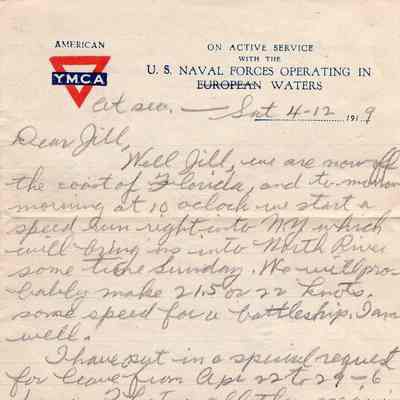 AMERICAN
YMCA
ON ACTIVE SERVICE
WITH THE
U. S. NAVAL FORCES OPERATING IN
EUROPEAN WATERS
At sea. — Sat 4-12 1919
Dear Jill,
Well Jill, we are now off
the coast of Florida, and to-morrow
morning at 10 oclock we start a
speed run right into NY which
will bring us into North River
some time Sunday. We will pro-
bably make 21.5 or 22 knots.
some speed for a battleship. I am
well.
I have put in a special request
for leave from Apr 22 to 29 - 6